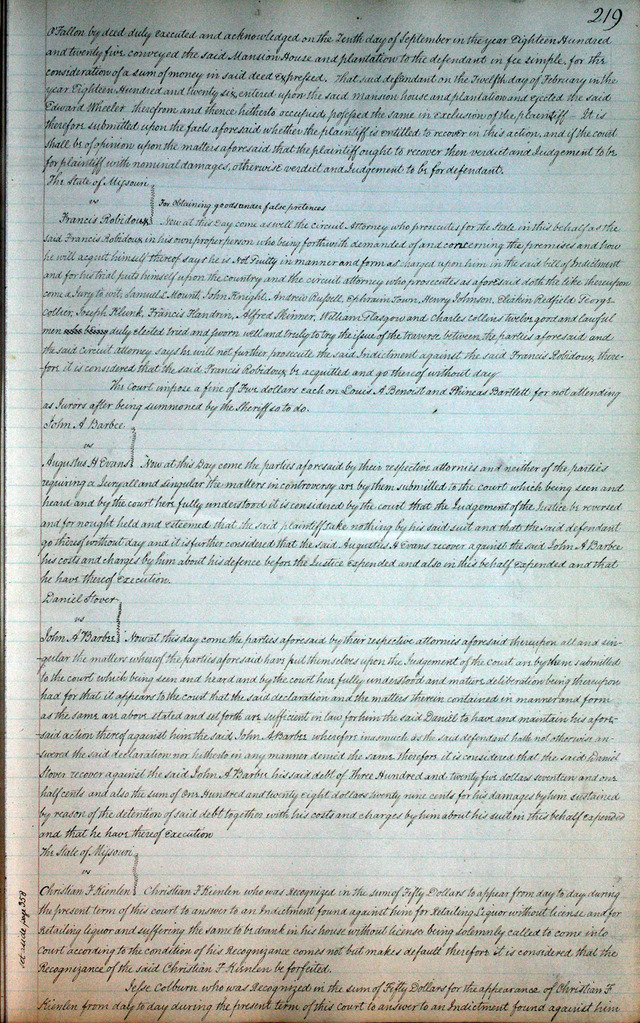 219
O'Fallon by deed duly executed and acknowledged on the Tenth day of September in the year Eighteen Hundred
and twenty five conveyed the said Mansion House and plantation to the defendant in fee simple, for the
consideration of a sum of money in said deed expressed. That said defendant on the Twelfth day of February in the
year Eighteen Hundred and twenty six entered upon the said mansion house and plantation and ejected the said
Edward Wheeler therefrom and thence hitherto occupied possessed the same in exclusion of the plaintiff It is
therefore submitted upon the facts aforesaid whether the plaintiff is entitled to recover in this action, and if the court
shall be of opinion upon the matters aforesaid that the plaintiff ought to recover then verdict and Judgement to be
for plaintiff with nominal damages, otherwise verdict and Judgement to be for defendant.
The State of Missouri
vs
For obtaining goods under false pretences
Francis Robidoux Now at this Day come as well the circuit Attorney who prosecutes for the State in this behalf as the
said Francis Robidoux in his own proper person who being forthwith demanded of and concerning the premises and how
he will acquit himself thereof says he is Not Guilty in manner and form as charged upon him in the said bill of Indictment
and for his trial puts himself upon the country and the circuit attorney who prosecutes as aforesaid doth the like thereupon
come a Jury to wit, Samuel L Mount, John Knight, Andrew Russell, Ephraim Town, Henry Johnson, Eliakin Redfield, George
Collier, Joseph Klunk, Francis Flandrin, Alfred Skinner, William Glasgow and Charles Collins twelve good and lawful
men who being duly elected tried and sworn well and truly to try the issue of the traverse between the parties aforesaid and
the said circuit attorney says he will not further prosecute the said Indictment against the said Francis Robidoux, there-
fore it is considered that the said Francis Robidoux be acquitted and go thereof without day
The Court impose a fine of Five dollars each on Louis A Benoist and Phineas Bartlett for not attending
as Jurors after being summoned by the Sheriff so to do.
John A Barbee
vs
Augustus H Evans Now at this Day come the parties aforesaid by their respective attornies and neither of the parties
requiring a Jury all and singular the matters in controversy are by them submitted to the court which being seen and
heard and by the court here fully understood it is considered by the court that the Judgement of the Justice be reversed
and for nought held and esteemed that the said plaintiff take nothing by his said suit and that the said defendant
go thereof without day and it is further considered that the said Augustus H Evans recover against the said John A Barbee
his costs and charges by him about his defence before the Justice expended and also in this behalf expended and that
he have thereof execution.
Daniel Stover
vs
John A Barbee Now at this day come the parties aforesaid by their respective attornies aforesaid thereupon all and sin-
-gular the matters whereof the parties aforesaid have put themselves upon the Judgement of the court are by them submitted
to the court which being seen and heard and by the court here fully understood and mature deliberation being thereupon
had for that it appears to the court that the said declaration and the matters therein contained in manner and form
as the same are above stated and set forth are sufficient in law for him the said Daniel to have and maintain his afore-
said action thereof against him the said John A Barbee wherefore inasmuch as the said defendant hath not otherwise an-
swered the said declaration nor hitherto in any manner denied the same therefore it is considered that the said Daniel
Stover recover against the said John A Barbee his said debt of Three Hundred and twenty five dollars seventeen and one
half cents and also the sum of One Hundred and twenty eight dollars twenty nine cents for his damages by him sustained
by reason of the detention of said debt together with his costs and charges by him about his suit in this behalf expended
and that he have thereof execution
The State of Missouri
vs
Christian F. Kienlen Christian F Kienlen who was Recognized in the sum of Fifty Dollars to appear from day to day during
the present term of this court to answer to an Indictment found against him for Retailing Liquor without license and for
Retailing liquor and suffering the same to be drank in his house without license being solemnly called to come into
court according to the condition of his Recognizance comes not but makes default therefore it is considered that the
Recognizance of the said Christian F Kienlen be forfeited.
Jesse Colburn who was Recognized in the sum of Fifty Dollars for the appearance of Christian F
Kienlen from day to day during the present term of this court to answer to an Indictment found against him
set aside page 358